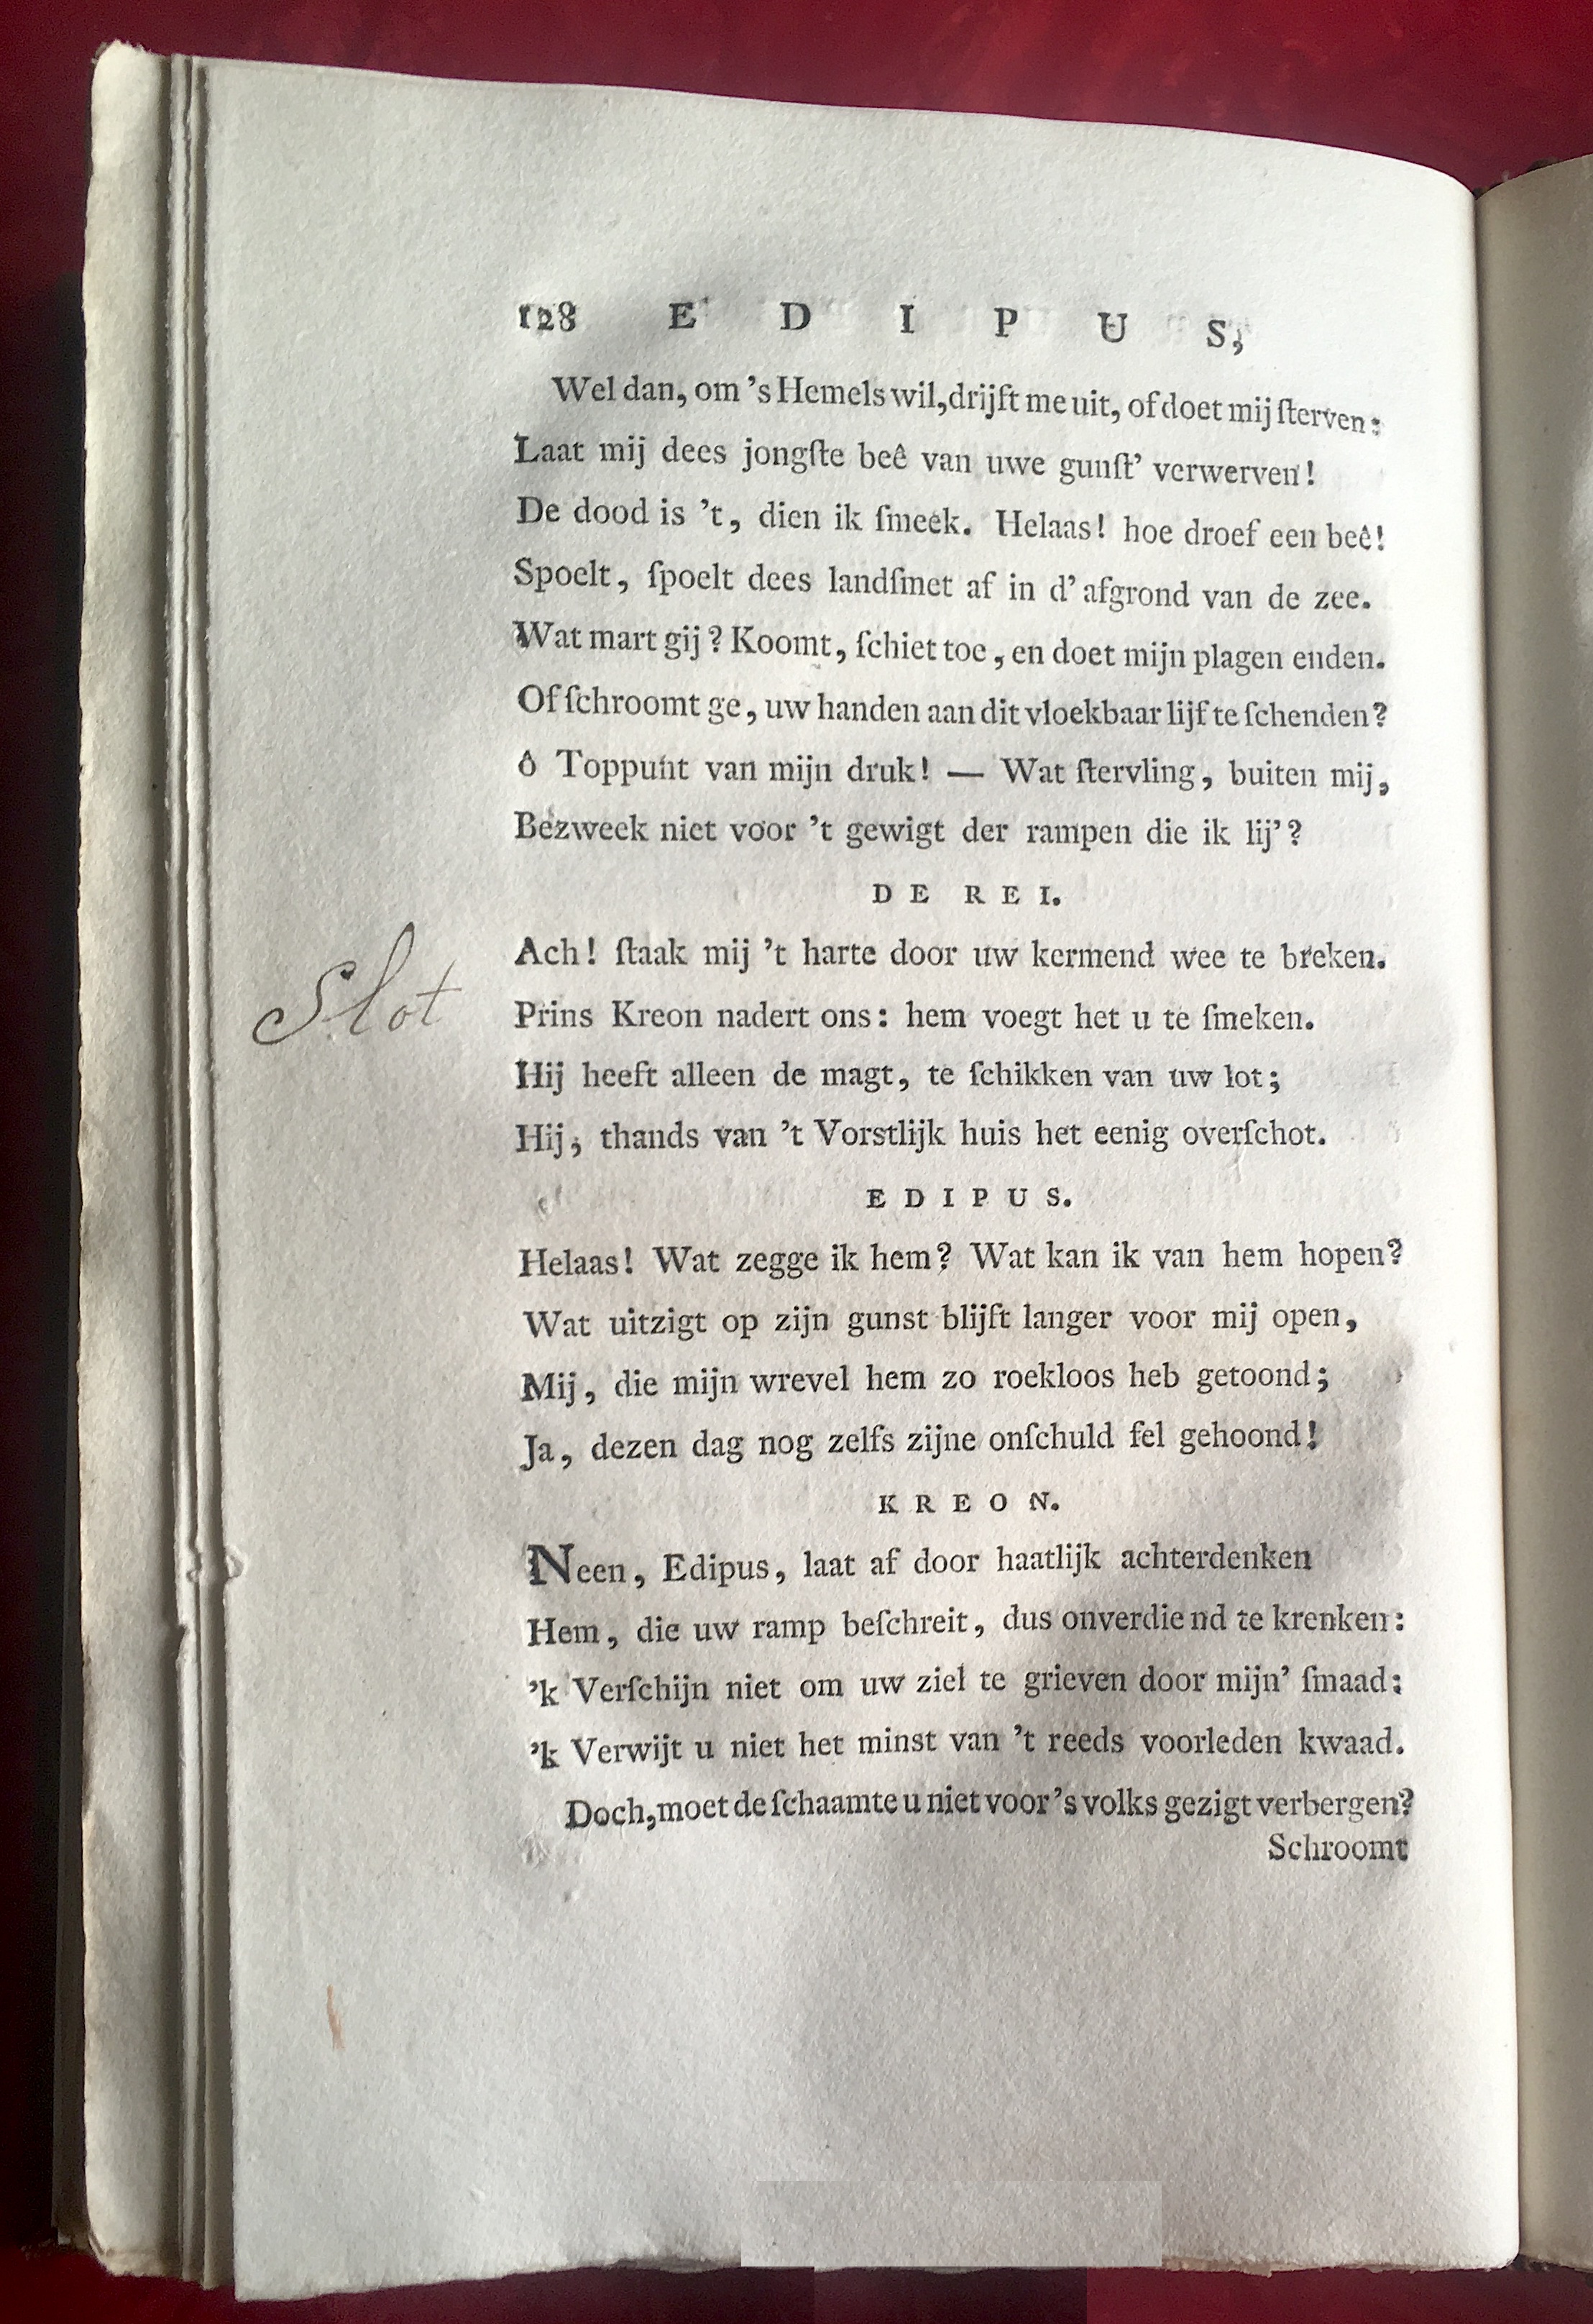 128 E D I P U S,
Wel dan, om 's Hemels wil, drijft me uit, of doet mij ſterven:
Laat mij dees jongſte beê van uwe gunſt' verwerven!
De dood is 't, dien ik ſmeek. Helaas! hoe droef een beê!
Spoelt, ſpoelt dees landſmet af in d' afgrond van de zee.
Wat mart gij? Koomt, ſchiet toe, en doet mijn plagen enden.
Of ſchroomt ge, uw handen aan dit vloekbaar lijf te ſchenden?
ô Toppunt van mijn druk! — Wat ſtervling, buiten mij,
Bezweek niet voor 't gewigt der rampen die ik lij'?
DE REI.
Ach! ſtaak mij 't harte door uw kermend wee te breken.
Slot
Prins Kreon nadert ons: hem voegt het u te ſmeken.
Hij heeft alleen de magt, te ſchikken van uw lot;
Hij, thands van 't Vorstlijk huis het eenig overſchot.
EDIPUS.
Helaas! Wat zegge ik hem? Wat kan ik van hem hopen?
Wat uitzigt op zijn gunst blijft langer voor mij open,
Mij, die mijn wrevel hem zo roekloos heb getoond;
Ja, dezen dag nog zelfs zijne onſchuld fel gehoond!
KREON.
Neen, Edipus, laat af door haatlijk achterdenken
Hem, die uw ramp beſchreit, dus onverdiend te krenken:
'k Verſchijn niet om uw ziel te grieven door mijn' ſmaad:
'k Verwijt u niet het minst van 't reeds voorleden kwaad.
Doch, moet de ſchaamte u niet voor 's volks gezigt verbergen?
Schroomt